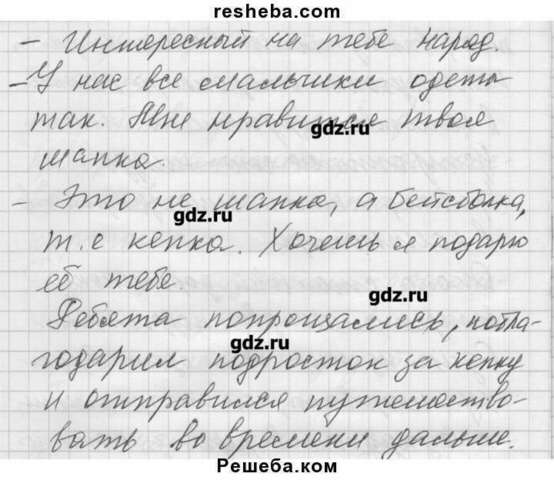 resheba.com
- Интересный на тебе народ.
- У нас все мальчики одеты
так. Мне нравится твоя
шапка.
- Это не шапка, а бейсболка,
т.е кепка. Хочешь я подарю
её тебе.
Ребята попрощались, побла-
годарил подросток за кепку
и отправился путешество-
вать во времени дальше.
gdz.ru
gdz.ru
gdz.ru
gdz.ru
Решеба.ком